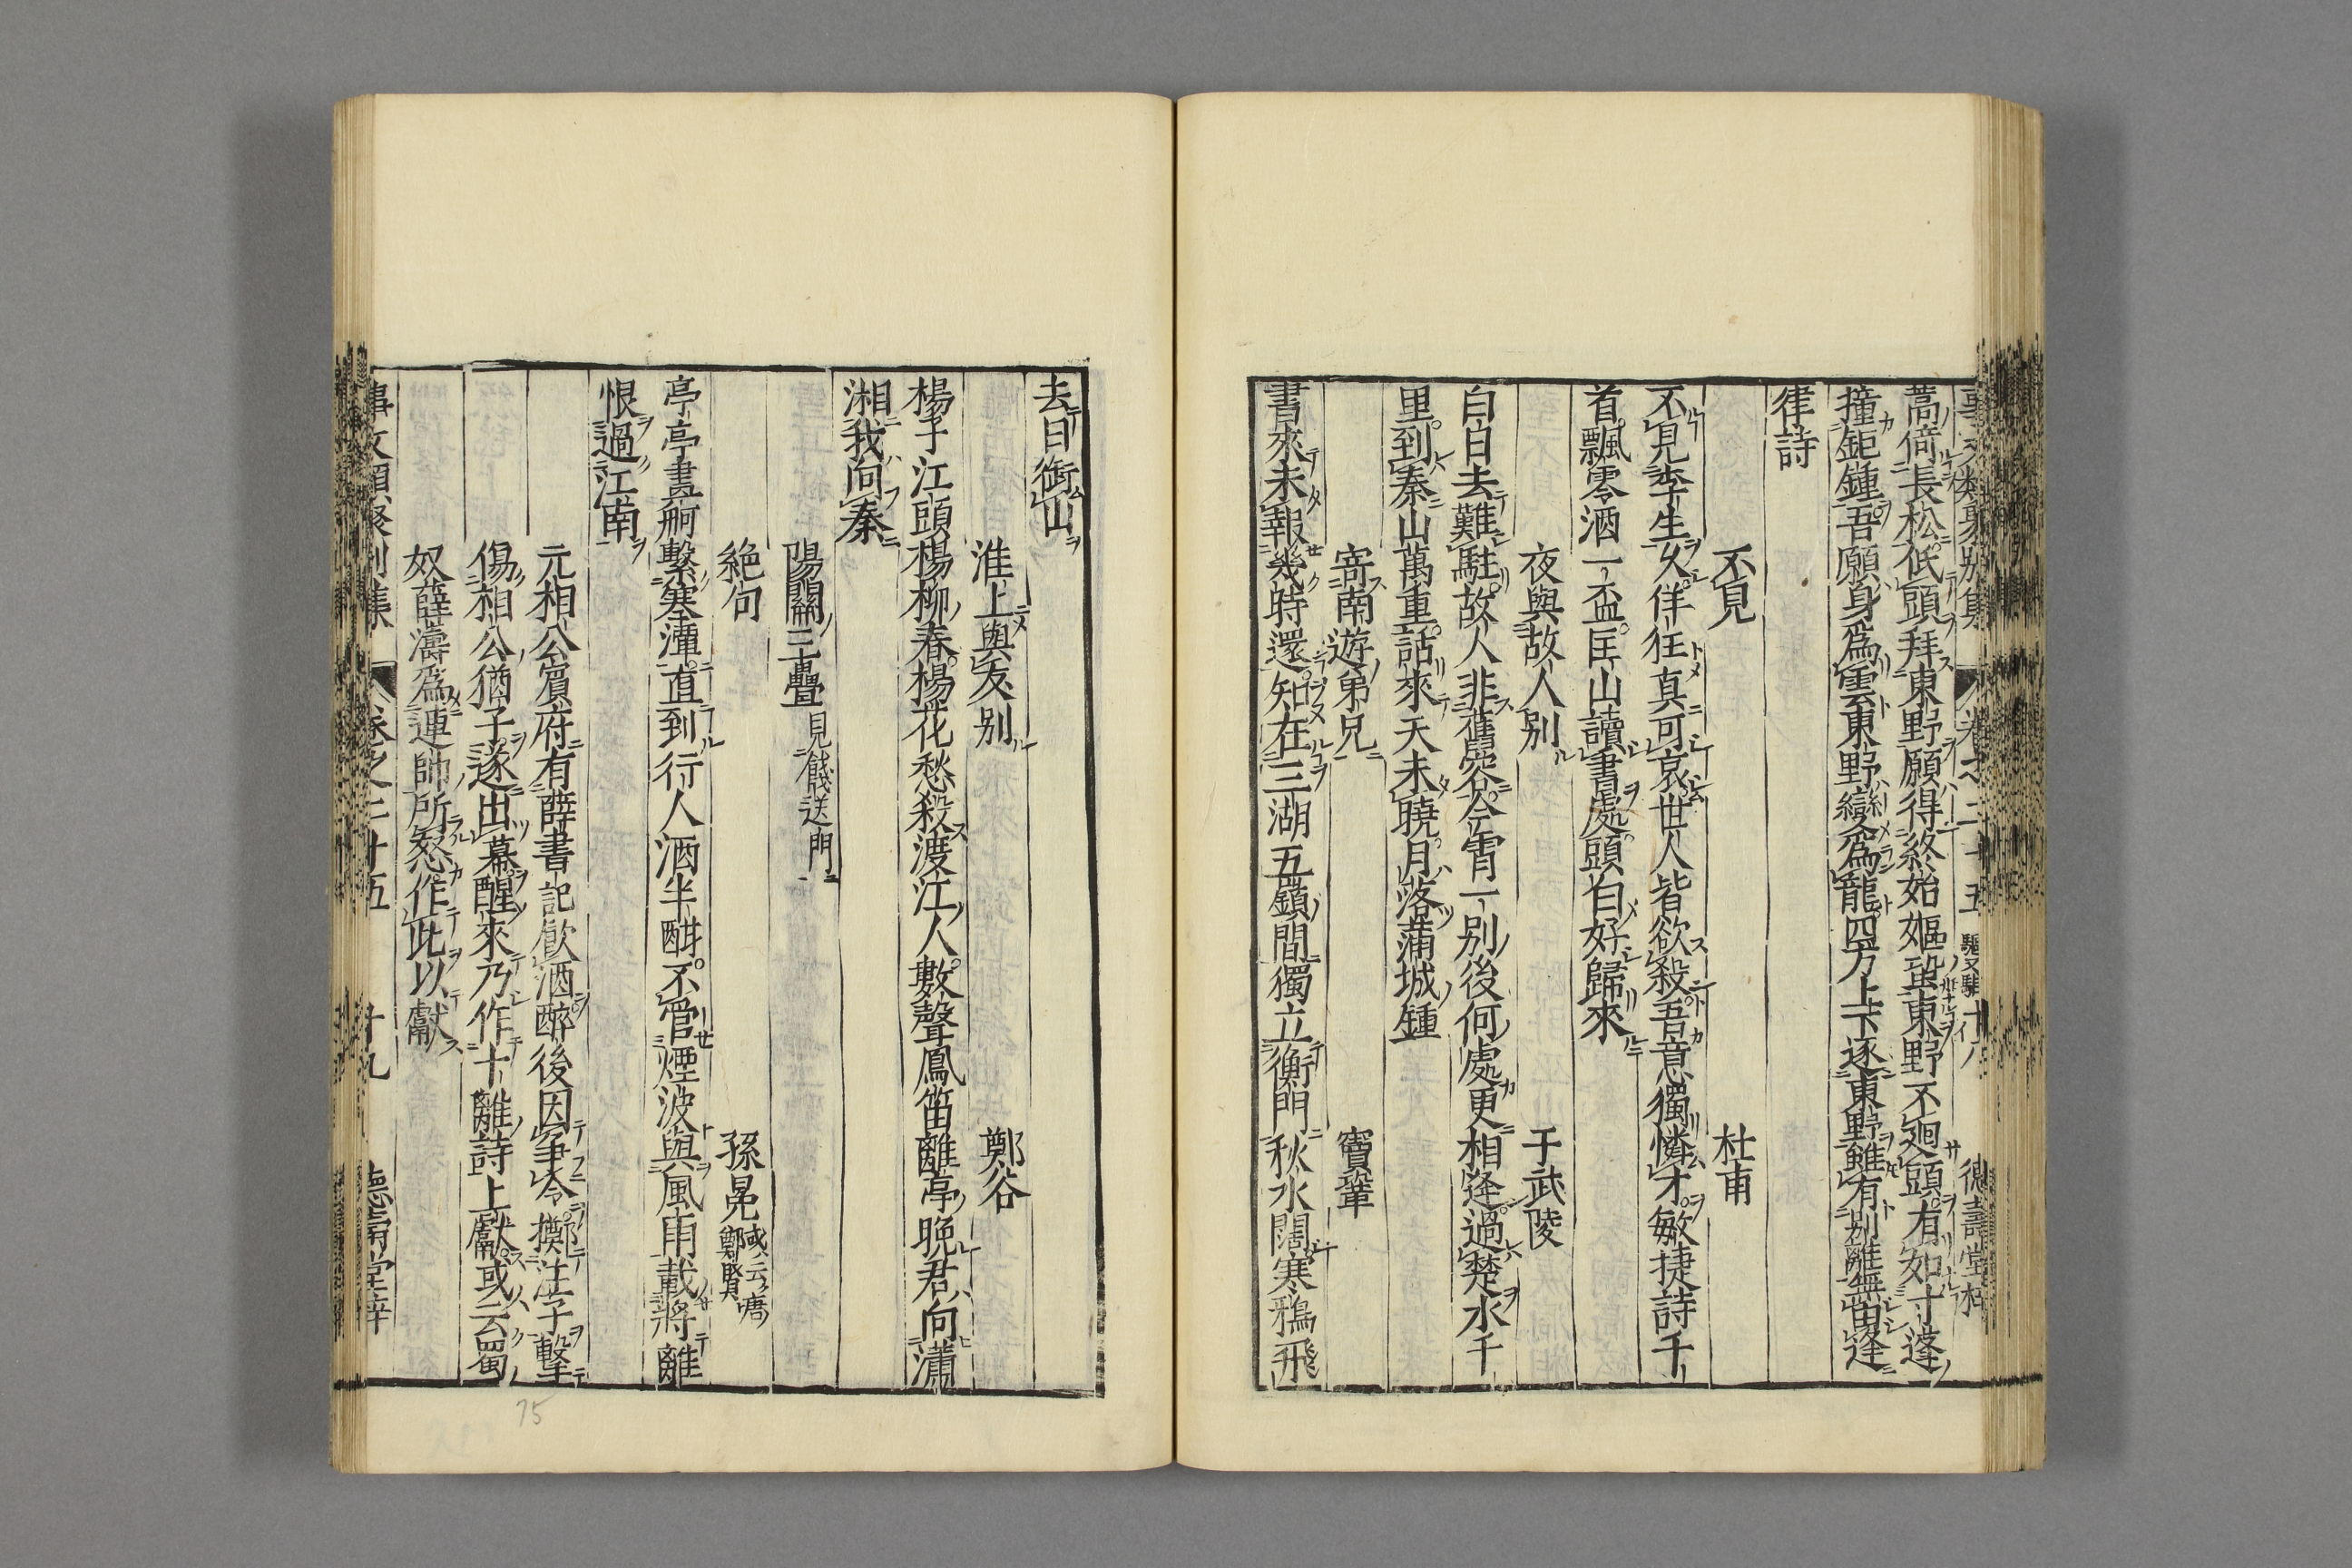 蒿倚長松低頭拜東野願得終始如駏蛩東野不廻頭有如寸莛
撞鉅鍾吾願身爲雲東野變爲龍四方上下逐東野雖有别離無由逢
律詩
不見 杜甫
不見李生久佯狂真可哀世人皆欲殺吾意獨憐才敏捷詩千
首飄零酒一盃匡山讀書處頭白好歸來
夜與故人别 于武陵
白日去難駐故人非舊容今宵一别後何處更相逢過楚水千
里到秦山萬重話來天未曉月落蒲城鍾
寄南遊弟兄 竇鞏
書來未報幾時還知在三湖五嶺間獨立衡門秋水闊寒鴉飛
去日銜山
淮上與友别 鄭谷
楊子江頭楊柳春楊花愁殺渡江人數聲鳳笛離亭晚君向瀟
湘我向秦
陽關三疊 見餞送門
絶句 孫晃 或云唐鄭賢
亭亭畫舸繫寒潭直到行人酒半酣不管煙波與風雨載將離
恨過江南
元相公賓府有薛書記飲酒醉後因爭令擲注子擊
傷相公猶子遂出幕醒來乃作十離詩上獻或云蜀
奴薛濤爲連帥所怒作此以獻
事文類聚别集 卷之二十五 十九 德壽堂梓